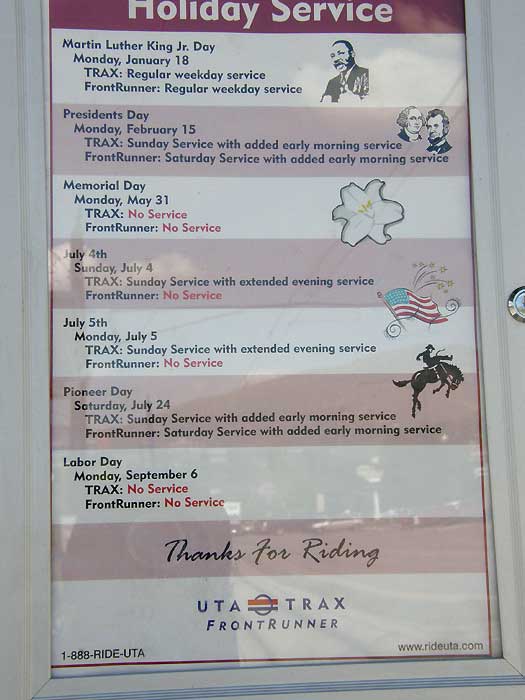 Holiday Service
Martin Luther King Jr. Day
Monday, January 18
TRAX: Regular weekday service
FrontRunner: Regular weekday service
Presidents Day
Monday, February 15
TRAX: Sunday Service with added early morning service
FrontRunner: Saturday Service with added early morning service
Memorial Day
Monday, May 31
TRAX: No Service
FrontRunner: No Service
July 4th
Sunday, July 4
TRAX: Sunday Service with extended evening service
FrontRunner: No Service
July 5th
Monday, July 5
TRAX: Sunday Service with extended evening service
FrontRunner: No Service
Pioneer Day
Saturday, July 24
TRAX: Sunday Service with added early morning service
FrontRunner: Saturday Service with added early morning service
Labor Day
Monday, September 6
TRAX: No Service
FrontRunner: No Service
Thanks For Riding
UTA TRAX
FRONTRUNNER
1-888-RIDE-UTA
www.rideuta.com